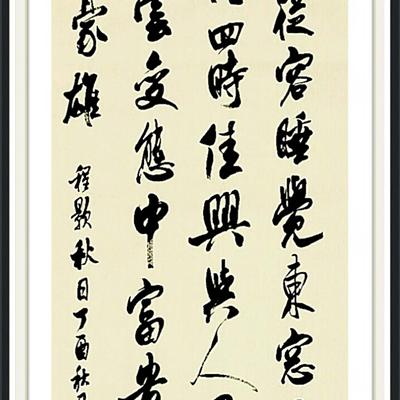 從容睡覺東窓
四時佳興與人
雲變態中富貴
豪雄
程顥秋日丁酉秋月